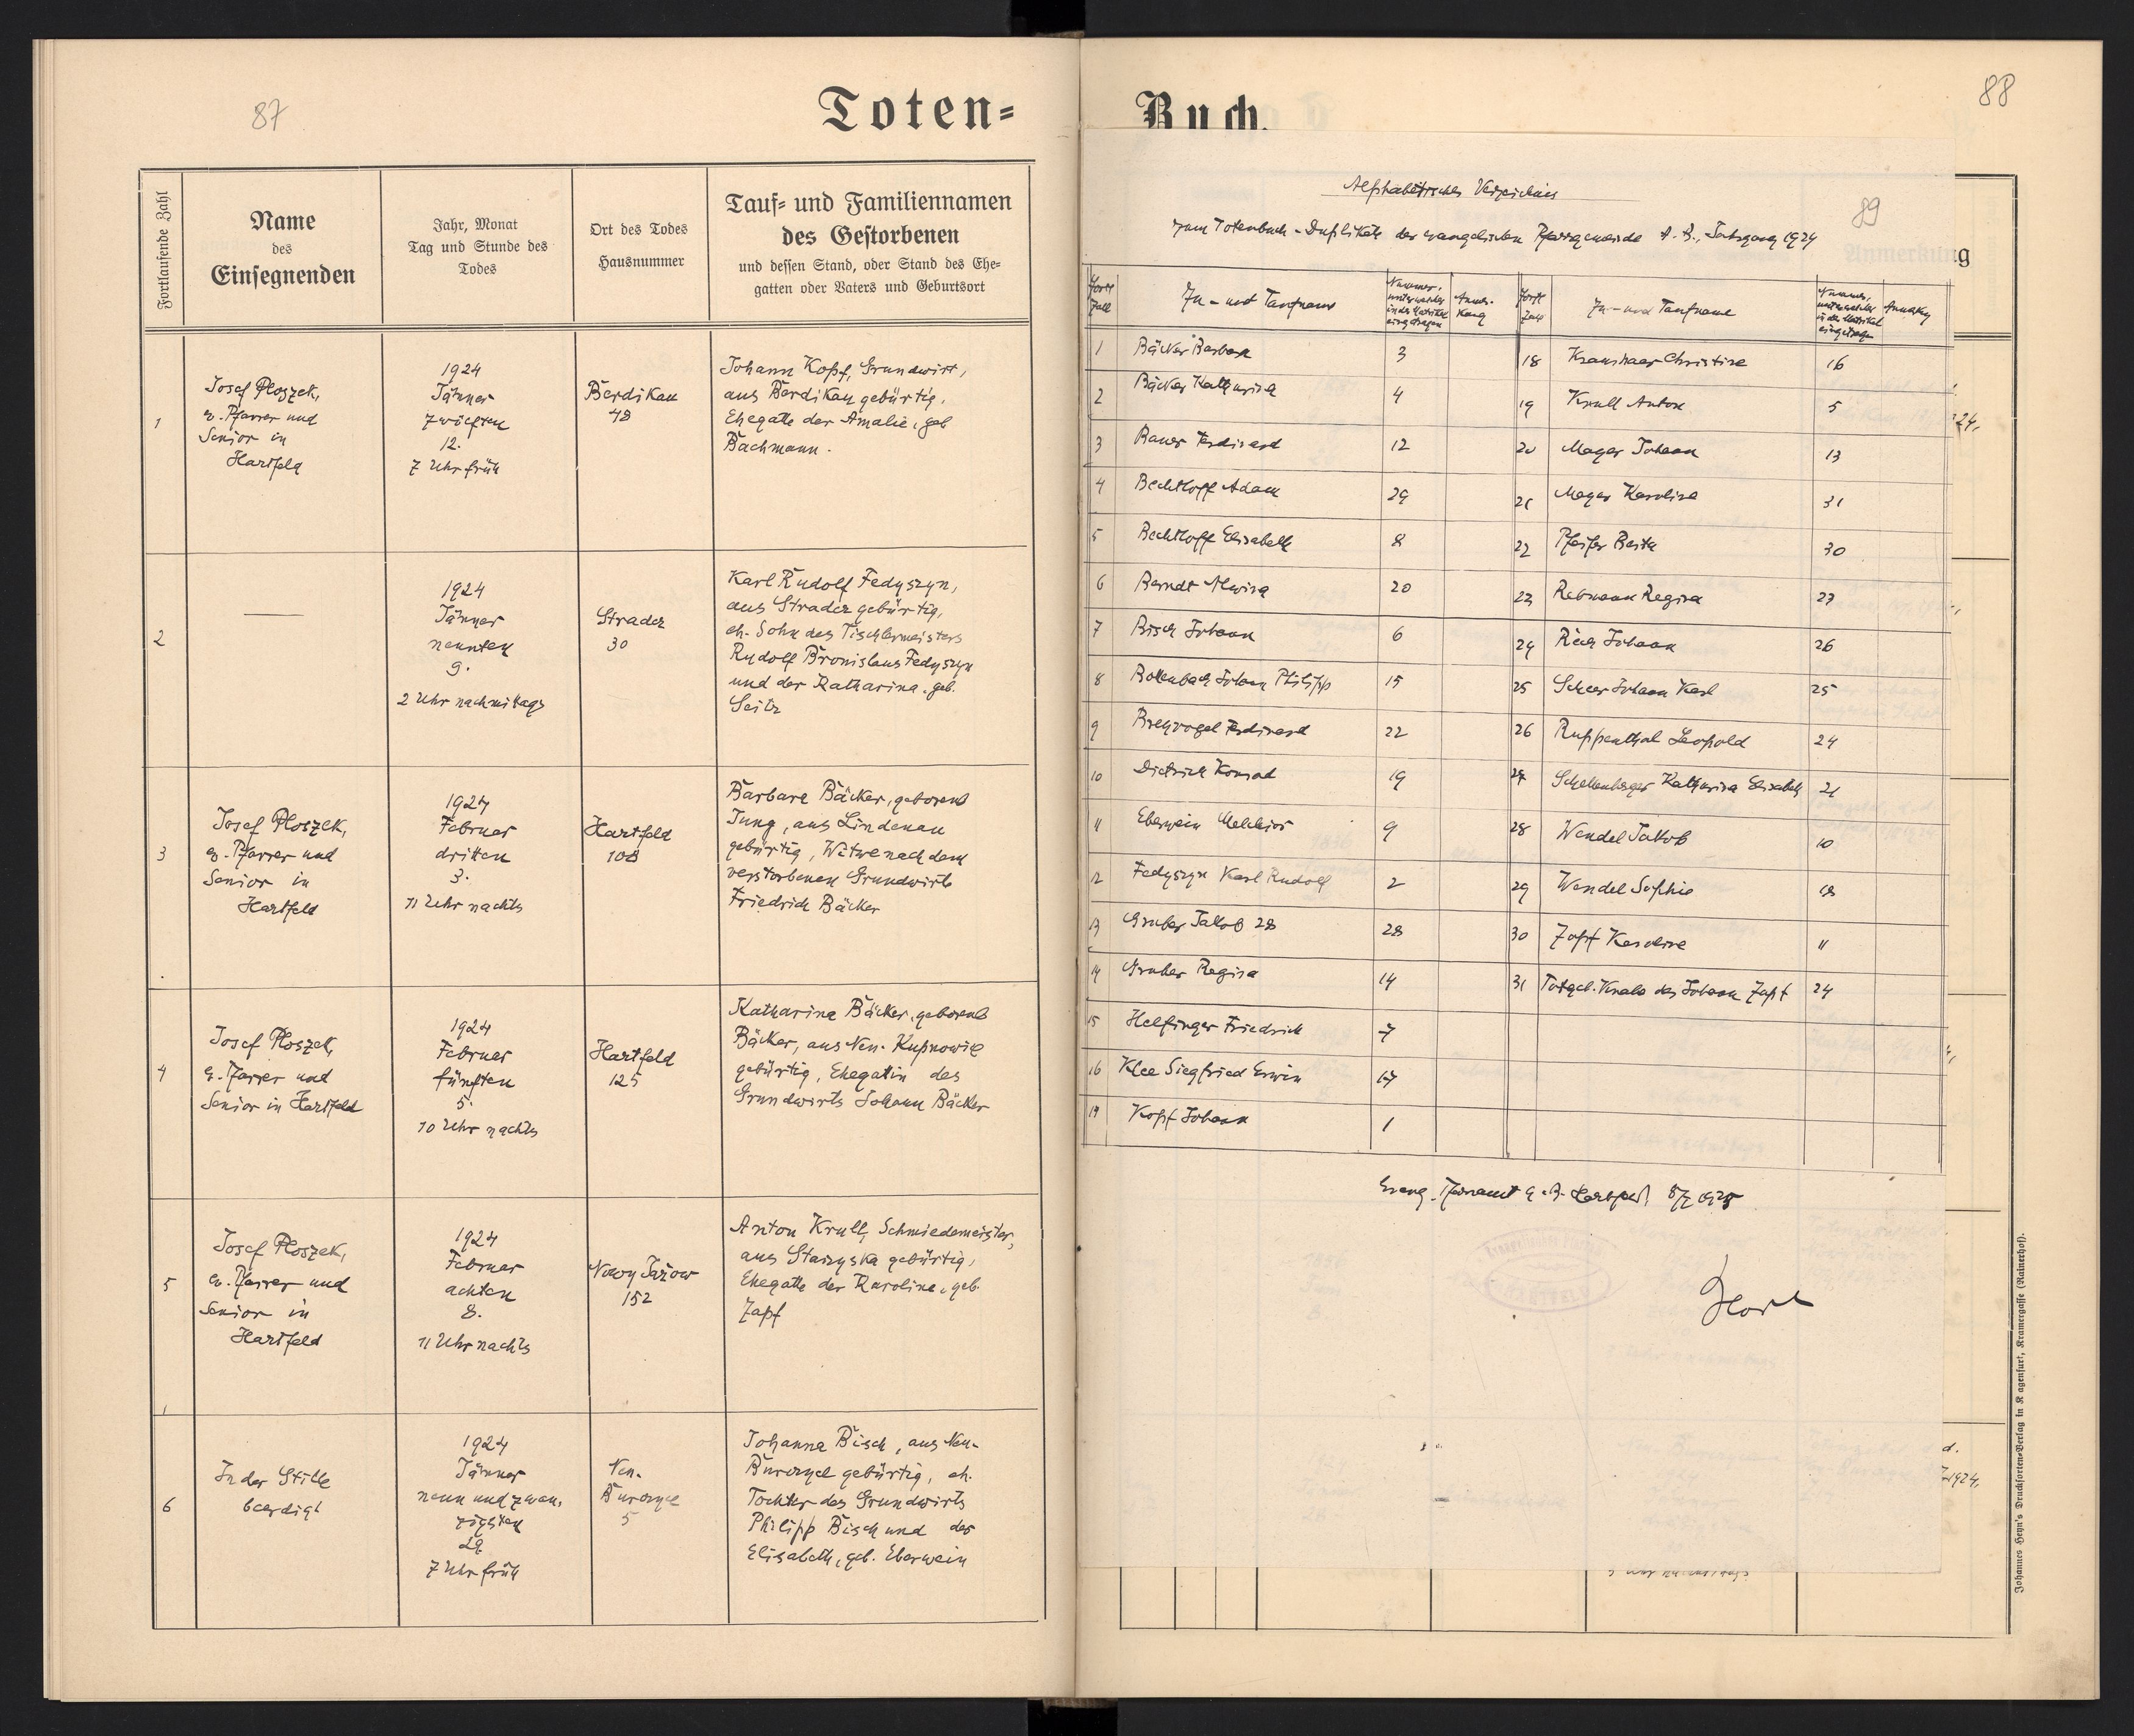 87
Toten=
Fortlaufende Zahl
Name
des
Einsegnenden
Jahr, Monat
Tag und Stunde des
Todes
Ort des Todes
Hausnummer
Tauf= und Familiennamen
des Gestorbenen
und dessen Stand, oder Stand des Ehe=
gatten oder Vaters und Geburtsort
1
Josef Ploszek,
ev. Pfarrer und
Senior in
Hartfeld
1924
Jänner
zwölften
12.
7 Uhr früh
Berdikau
48
Johann Kopf, Grundwirt,
aus Berdikau gebürtig,
Ehegatte der Amalie, geb
Bachmann.
2
1924
Jänner
neunten
9.
2 Uhr nachmittags
Stradcz
30
Karl Rudolf Fedyszyn,
aus Stradcz gebürtig,
eh. Sohn des Tischlermeisters
Rudolf Bronislaus Fedyszyn
und der Katharina, geb.
Seitz
3
Josef Ploszek,
ev. Pfarrer und
Senior in
Hartfeld
1924
Februar
dritten
3.
11 Uhr nachts
Hartfeld
108
Barbara Bäcker, geborene
Jung, aus Lindenau
gebürtig, Witwe nach dem
verstorbenen Grundwirte
Friedrich Bäcker
4
Josef Ploszek,
ev. Pfarrer und
Senior in Hartfeld
1924
Februar
fünften
5.
10 Uhr nachts
Hartfeld
125
Katharina Bäcker, geborene
Bäcker, aus Neu-Kupnowice
gebürtig, Ehegattin des
Grundwirts Johann Bäcker
5
Josef Ploszek,
ev. Pfarrer und
Senior in
Hartfeld
1924
Februar
achten
8.
11 Uhr nachts
Nowy Jazow
152
Anton Krull, Schmiedemeister,
aus Starzyska gebürtig,
Ehegatte der Karoline, geb.
Zapf
6
In der Stille
beerdigt
1924
Jänner
neun und zwan-
zigsten
29
7 Uhr früh
Neu-
Burczyce
5
Johanna Bisch, aus Neu-
Burczyce gebürtig, eh.
Tochter des Grundwirts
Philipp Bisch und der
Elisabeth, geb. Eberwein
88
Buch.
Anmerkung
24,
Alphabetisches Verzeichnis
89
zum Totenbuch-Duplikate der evangelischen Pfarrgemeinde A. B., Jahrgang 1924
Fortl Zahl
Zu- und Taufname
Nummer, unter welcher in der Matrikel eingetragen
Anmerkung
Fortl Zahl
Zu- und Taufname
Nummer, unter welcher in der Matrikel eingetragen
Anmerkg
1 Bäcker Barbara 3
18 Kranshaar Christine 16
2 Bäcker Katharina 4
19 Krull Anton 5
3 Bauer Ferdinand 12
20 Mayer Johann 13
4 Bechtloff Adam 29
21 Mayer Karoline 31
5 Bechtloff Elisabeth 8
22 Pfeifer Berta 30
6 Berndt Alwina 20
23 Rebmann Regina 27
7 Bisch Johann 6
24 Rech Johann 26
8 Bollenbach Johann Philipp 15
25 Scheer Johann Karl 25
9 Breyvogel Ferdinand 22
26 Ruppenthal Leopold 24
10 Dietrich Konrad 19
27 Schellenberger Katharina Elisabeth 21
11 Eberwein Melchior 9
28 Wendel Jakob 10
12 Fedyszyn Karl Rudolf 2
29 Wendel Sophie 18
13 Gruber Jakob 28 28
30 Zapf Karoline 11
14 Gruber Regina 14
31 Totgeb. Knabe des Johann Zapf 24
15 Helfinger Friedrich 7
16 Klee Siegfried Erwin 17
17 Kopf Johann 1
Evang. Pfarramt A. B. Hartfeld,
HARTFELD
d.
1924,
Johannes Heyn's Drucksorten-Verlag in Klagenfurt, Kramergasse (Rainerhof).